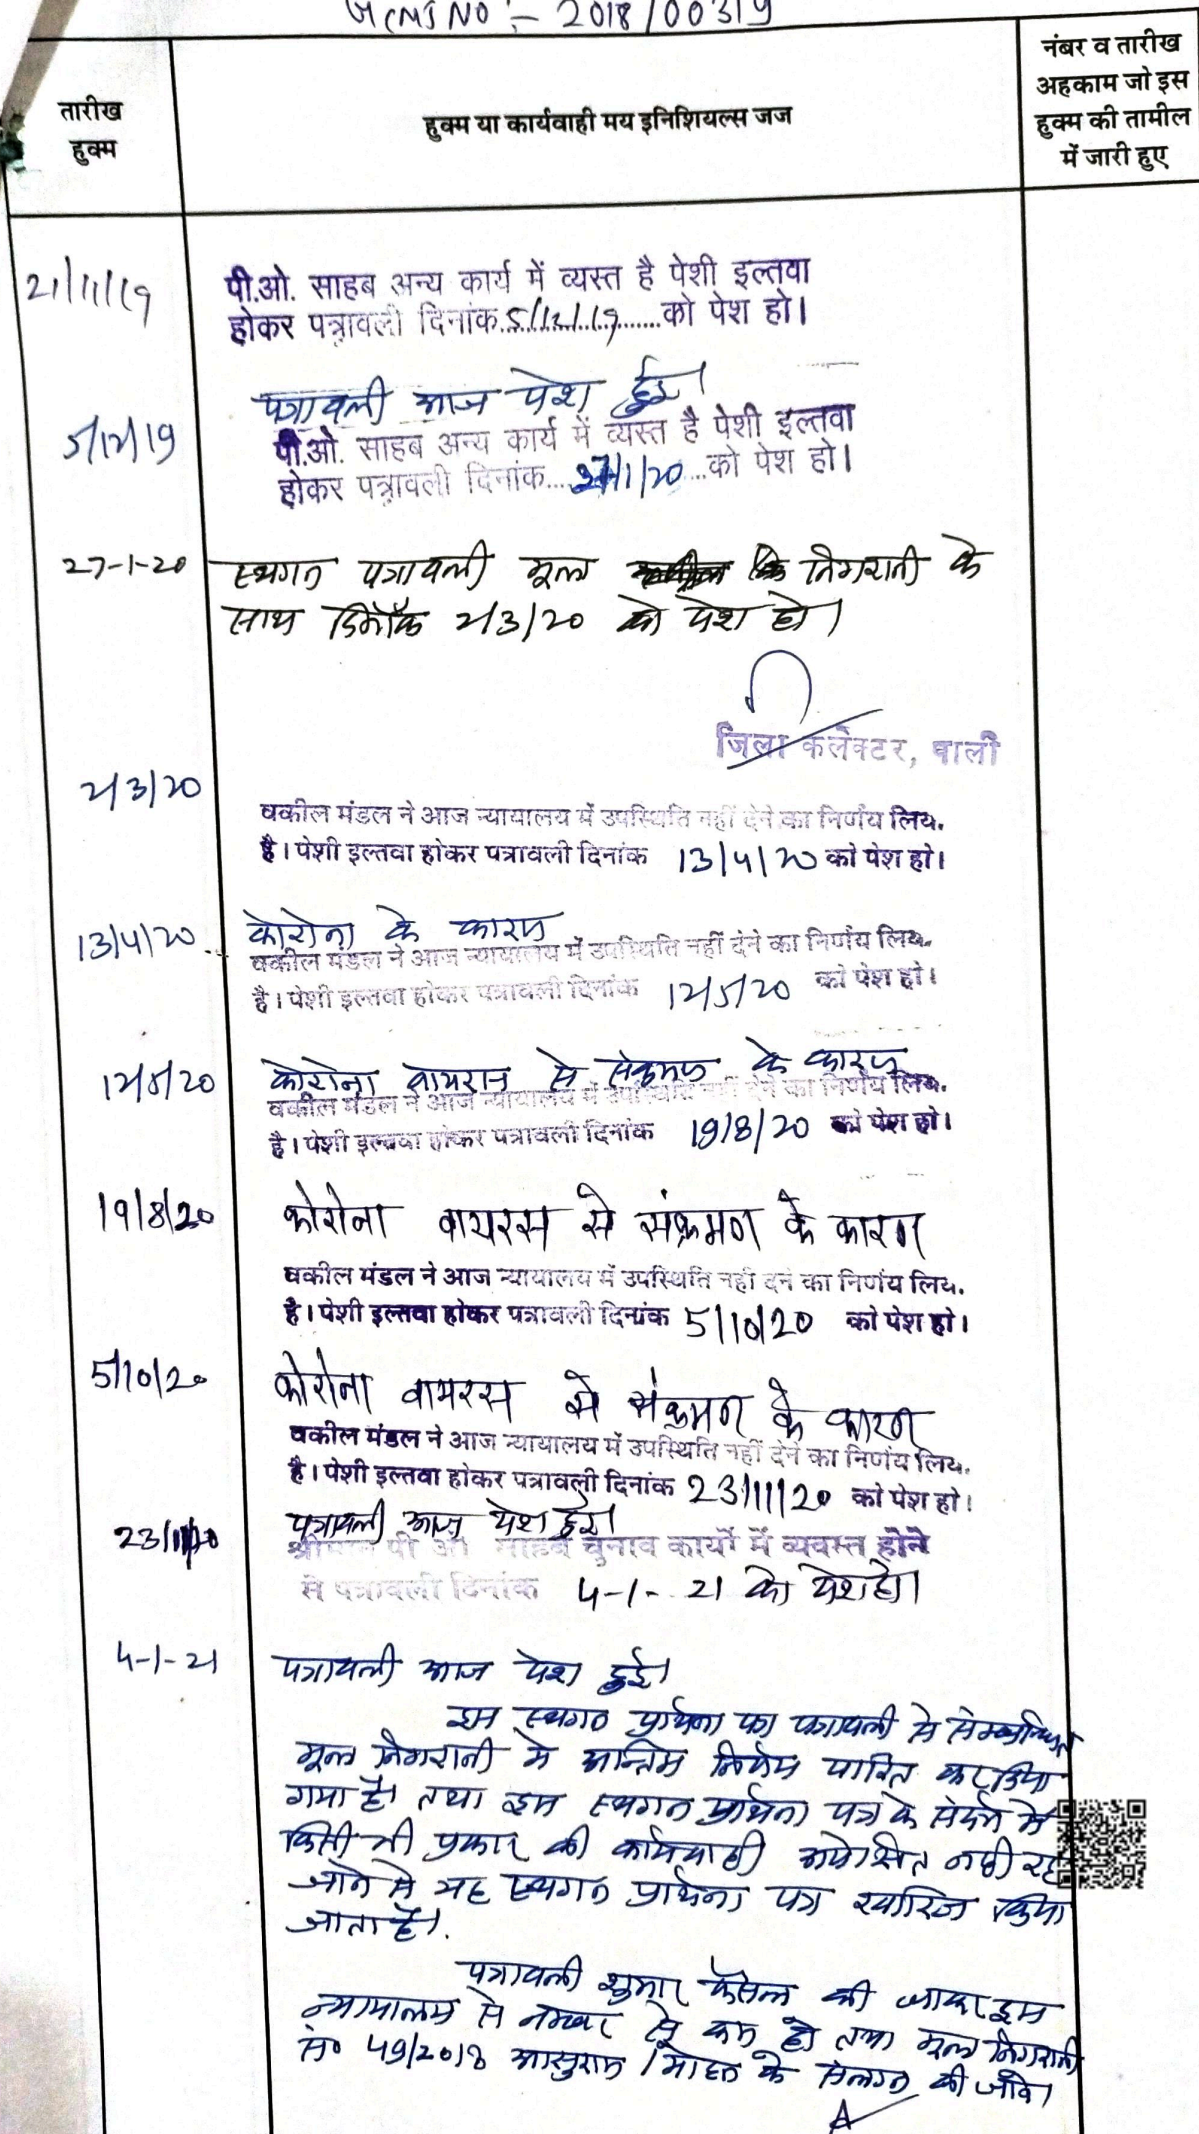 GCMS NO :- 2018/00319
तारीख हुक्म
हुक्म या कार्यवाही मय इनिशियल्स जज
नंबर व तारीख
अहकाम जो इस
हुक्म की तामील
में जारी हुए
21/11/19
पी.ओ. साहब अन्य कार्य में व्यस्त है पेशी इल्तवा
होकर पत्रावली दिनांक 5/12/19 को पेश हो।
पत्रावली आज पेश हुई।
5/12/19
पी.ओ. साहब अन्य कार्य में व्यस्त है पेशी इल्तवा
होकर पत्रावली दिनांक....27/1/20...को पेश हो।
27-1-20
स्थगन पत्रावली मूल निगरानी के
साथ दिनाँक 2/3/20 को पेश हो।
जिला कलेक्टर, पाली
2/3/20
वकील मंडल ने आज न्यायालय में उपस्थिति नहीं देने का निर्णय लिय.
है। पेशी इल्तवा होकर पत्रावली दिनांक 13/4/20 को पेश हो।
13/4/20
कोरोना के कारण
वकील मंडल ने आज न्यायालय में उपस्थिति नहीं देने का निर्णय लिय.
है। पेशी इल्तवा होकर पत्रावली दिनांक 12/5/20 को पेश हो।
12/5/20
कोरोना वायरस से संक्रमण के कारण
वकील मंडल ने आज न्यायालय में उपस्थिति नहीं देने का निर्णय लिय.
है। पेशी इल्तवा होकर पत्रावली दिनांक 19/8/20 को पेश हो।
19/8/20
कोरोना वायरस से संक्रमण के कारण
वकील मंडल ने आज न्यायालय में उपस्थिति नहीं देने का निर्णय लिय.
है। पेशी इल्तवा होकर पत्रावली दिनांक 5/10/20 को पेश हो।
5/10/20
कोरोना वायरस से संक्रमण के कारण
वकील मंडल ने आज न्यायालय में उपस्थिति नहीं देने का निर्णय लिय.
है। पेशी इल्तवा होकर पत्रावली दिनांक 23/11/20 को पेश हो।
पत्रावली आज पेश हुई।
23/11/20
श्रीमान पी ओ साहब चुनाव कार्यों में व्यवस्त होने
से पत्रावली दिनांक 4-1-21 को पेश हो।
4-1-21
पत्रावली आज पेश हुई।
इस स्थगन प्रार्थना पत्र पत्रावली से सम्बन्धित
मूल निगरानी में अन्तिम निर्णय पारित कर दिया
गया है। तथा इस स्थगन प्रार्थना पत्र के संदर्भ में
किसी भी प्रकार की कार्यवाही अपेक्षित नहीं रह
जाने से यह स्थगन प्रार्थना पत्र खारिज किया
जाता है।
पत्रावली शुमार फैसल की जाकर इस
न्यायालय से नम्बर से कम हो तथा मूल निगरानी
सं० 49/2018 आसुराम / मोहन के संलग्न की जावे।